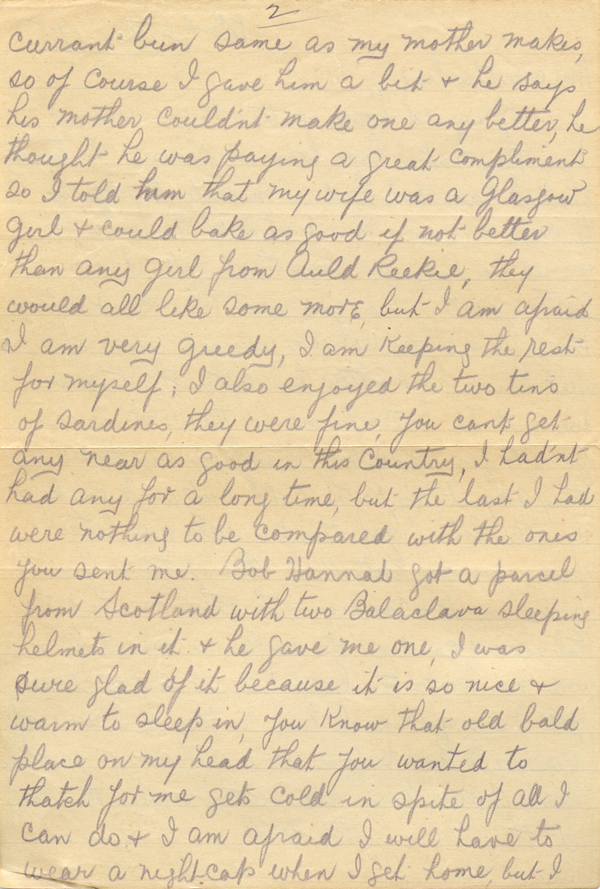 2
currant bun same as my mother makes,
so of course I gave him a bit & he says
his mother could'nt make one any better, he
thought he was paying a great compliment
so I told him that my wife was a Glasgow
girl & could bake as good if not better
than any girl from Auld Reekie, they
would all like some more, but I am afraid
I am very greedy, I am keeping the rest
for myself; I also enjoyed the two tins
of sardines, they were fine, you cant get
any near as good in this Country, I had'nt
had any for a long time, but the last I had
were nothing to be compared with the ones
you sent me. Bob Hannah got a parcel
from Scotland with two Balaclava sleeping
helmets in it & he gave me one, I was
sure glad of it because it is so nice &
warm to sleep in, you know that old bald
place on my head that you wanted to
thatch for me gets cold in spite of all I
can do & I am afraid I will have to
wear a nightcap when I get home, but I